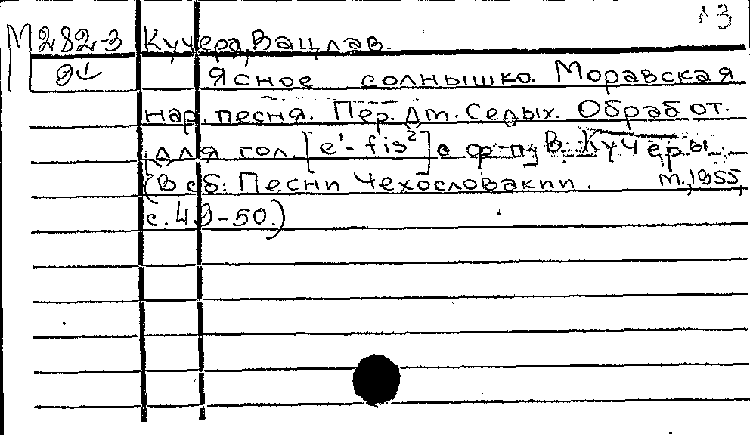 13
М282-3 Кучера, Вацлав.
Ясное солнышко. Моравская
нар. песня. Пер. Дм. Седых. Обработ.
для гол. [e¹-fis²] с ф-п. В. Кучеры.
(В сб: Песни Чехословакии. М, 1955,
с. 49-50.)